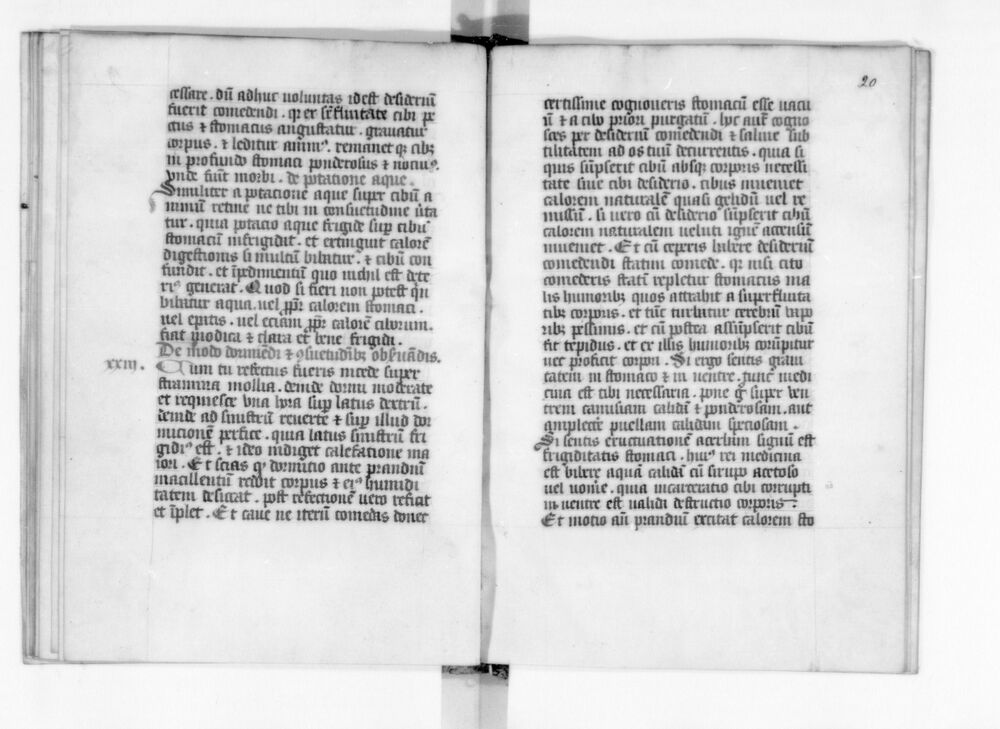 cessare. dū adhuc uoluntas id est desideriū
fuerit comedendi. qr ex sr̄fluitate cibi pe
ctus ⁊ stomacus angustatur. grauatur
corpus. ⁊ leditur animꝰ. remanet qꝫ cibꝫ
in profundo stomaci ponderosus ⁊ nociuꝰ.
vnde fiunt morbi. de potatione aque.
Similiter a potacione aque super cibū a
nimū retine ne tibi in consuetudine uta
tur. quia potacio aque frigide suꝑ cibū
stomacū infrigidit. et extinguit calorē
digestionis si multū bibatur. ⁊ cibū con
fundit. et īpedimentū quo nichil est dete
riꝰ generat. Quod si fieri non potest qn̄
bibatur aqua. uel ꝓpr̄ calorem stomaci.
uel epitis. uel eciam ꝓpr̄ calorē ciborum.
fiat modica ⁊ clara et bene frigidi.
De modo dormiēdi ⁊ ꝯsuetudībꝫ obseruādis.
xxiij.
Cum tu refectus fueris incede super
stramina mollia. deinde dormi moderate
et requiesce vna hora suꝑ latus dextrū.
deinde ad sinistrū reuerte ⁊ suꝑ illud dor
micionem perfice. quia latus sinistrū fri
gidūꝰ est. ⁊ ideo indiget calefatione ma
iori. Et scias qꝫ dormitio ante prandiū
macillentū reddit corpus ⁊ eiꝰ humidi
tatem desiccat. post refectionē uero reficit
et īplet. Et caue ne iterū comedas donec
20
certissime cognoueris stomacū esse uacu
ū ⁊ a cibo priori purgatū. hoc aut̄ cogno
sces per desideriū comedendi ⁊ saliue sub
tilitatem ad os tuū decurrentis. quia si
quis sūpserit cibū absqꝫ corporis necessi
tate siue cibi desiderio. cibus inueniet
calorem naturalē quasi gelidū uel re
missū. si uero cū desiderio sūpserit cibū
calorem naturalem ueluti ignē accensū
inueniet. Et cū ceperis habere desideriū
comedendi statim comede. qr nisi cito
comederis statī repletur stomacus ma
lis humoribꝫ quos attrahit a superfluita
tibꝫ corporis. et tūc turbatur cerebrū vapo
ribꝫ pessimis. et cū postea assūpserit cibū
fit tepidus. et ex illis humoribꝫ corrūpitur
nec proficit corpori. Si ergo sentis graui
tatem in stomaco ⁊ in uentre. tunc medi
cina est tibi necessaria. pone gͦ super ven
trem camisiam calidā ⁊ ponderosam. aut
amplectere puellam calidam speciosam.
Si sentis eructuationē acerbam signū est
frigiditatis stomaci. huiꝰ rei medicina
est bibere aquā calidā cū sirupo acetoso
uel uomē. quia incarceratio cibi corrupti
in uentre est ualidi destructio corporis:
Et motio añ prandiū excitat calorem sto